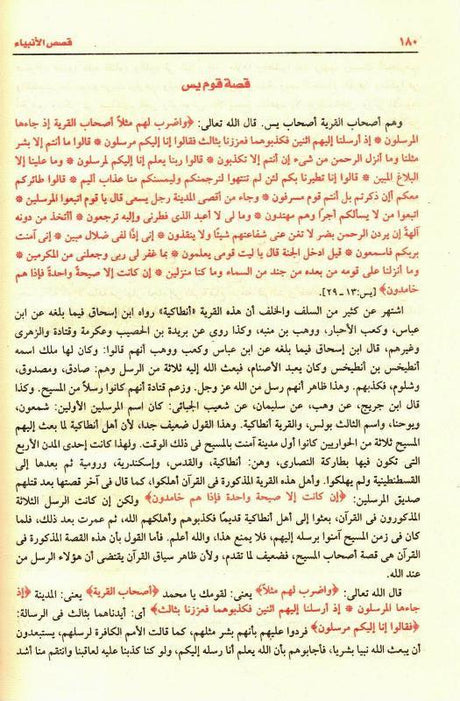 ١٨٠
قصص الأنبياء
قصة قوم يس
وهم أصحاب القرية أصحاب يس. قال الله تعالى: ﴿واضرب لهم مثلاً أصحاب القرية إذ جاءها
المرسلون * إذ أرسلنا إليهم اثنين فكذبوهما فعززنا بثالث فقالوا إنا إليكم مرسلون * قالوا ما أنتم إلا بشر
مثلنا وما أنزل الرحمن من شيء إن أنتم إلا تكذبون * قالوا ربنا يعلم إنا إليكم لمرسلون * وما علينا إلا
البلاغ المبين * قالوا إنا تطيرنا بكم لئن لم تنتهوا لنرجمنكم وليمسنكم منا عذاب أليم * قالوا طائركم
معكم أإن ذكرتم بل أنتم قوم مسرفون * وجاء من أقصى المدينة رجل يسعى قال يا قوم اتبعوا المرسلين *
اتبعوا من لا يسألكم أجرًا وهم مهتدون * وما لى لا أعبد الذى فطرنى وإليه ترجعون * أأتخذ من دونه
آلهة إن يردن الرحمن بضر لا تغن عنى شفاعتهم شيئًا ولا ينقذون * إنى إذًا لفى ضلال مبين * إنى آمنت
بربكم فاسمعون * قيل ادخل الجنة قال يا ليت قومى يعلمون * بما غفر لى ربى وجعلنى من المكرمين *
وما أنزلنا على قومه من بعده من جند من السماء وما كنا منزلين * إن كانت إلا صيحة واحدة فإذا هم
خامدون﴾ [يس:١٣ـ٢٩].
اشتهر عن كثير من السلف والخلف أن هذه القرية «أنطاكية» رواه ابن إسحاق فيما بلغه عن ابن
عباس، وكعب الأحبار، ووهب بن منبه، وكذا روى عن بريدة بن الحصيب وعكرمة وقتادة والزهرى
وغيرهم، قال ابن إسحاق فيما بلغه عن ابن عباس وكعب ووهب أنهم قالوا: وكان لها ملك اسمه
أنطيخس بن أنطيخس وكان يعبد الأصنام، فبعث الله إليه ثلاثة من الرسل وهم: صادق، ومصدوق،
وشلوم، فكذبهم. وهذا ظاهر أنهم رسل من الله عز وجل. وزعم قتادة أنهم كانوا رسلاً من المسيح. وكذا
قال ابن جريج، عن وهب، عن سليمان، عن شعيب الجبائى: كان اسم المرسلين الأولين: شمعون،
ويوحنا، واسم الثالث بولس، والقرية أنطاكية. وهذا القول ضعيف جدا، لأن أهل أنطاكية لما بعث إليهم
المسيح ثلاثة من الحواريين كانوا أول مدينة آمنت بالمسيح فى ذلك الوقت. ولهذا كانت إحدى المدن الأربع
التى تكون فيها بطاركة النصارى، وهن: أنطاكية، والقدس، وإسكندرية، ورومية ثم بعدها إلى
القسطنطينية ولم يهلكوا. وأهل هذه القرية المذكورة فى القرآن أهلكوا، كما قال فى آخر قصتها بعد قتلهم
صديق المرسلين: ﴿إن كانت إلا صيحة واحدة فإذا هم خامدون﴾ ولكن إن كانت الرسل الثلاثة
المذكورون فى القرآن، بعثوا إلى أهل أنطاكية قديمًا فكذبوهم وأهلكهم الله، ثم عمرت بعد ذلك، فلما
كان فى زمن المسيح آمنوا برسله إليهم، فلا يمنع هذا، والله أعلم. فأما القول بأن هذه القصة المذكورة فى
القرآن هى قصة أصحاب المسيح، فضعيف لما تقدم، ولأن ظاهر سياق القرآن يقتضى أن هؤلاء الرسل من
عند الله.
قال الله تعالى: ﴿واضرب لهم مثلاً﴾ يعنى: لقومك يا محمد ﴿أصحاب القرية﴾ يعنى: المدينة ﴿إذ
جاءها المرسلون * إذ أرسلنا إليهم اثنين فكذبوهما فعززنا بثالث﴾ أى: أيدناهما بثالث فى الرسالة:
﴿فقالوا إنا إليكم مرسلون﴾ فردوا عليهم بأنهم بشر مثلهم، كما قالت الأمم الكافرة لرسلهم، يستبعدون
أن يبعث الله نبيا بشريا، فأجابوهم بأن الله يعلم أنا رسله إليكم، ولو كنا كذبنا عليه لعاقبنا وانتقم منا أشد